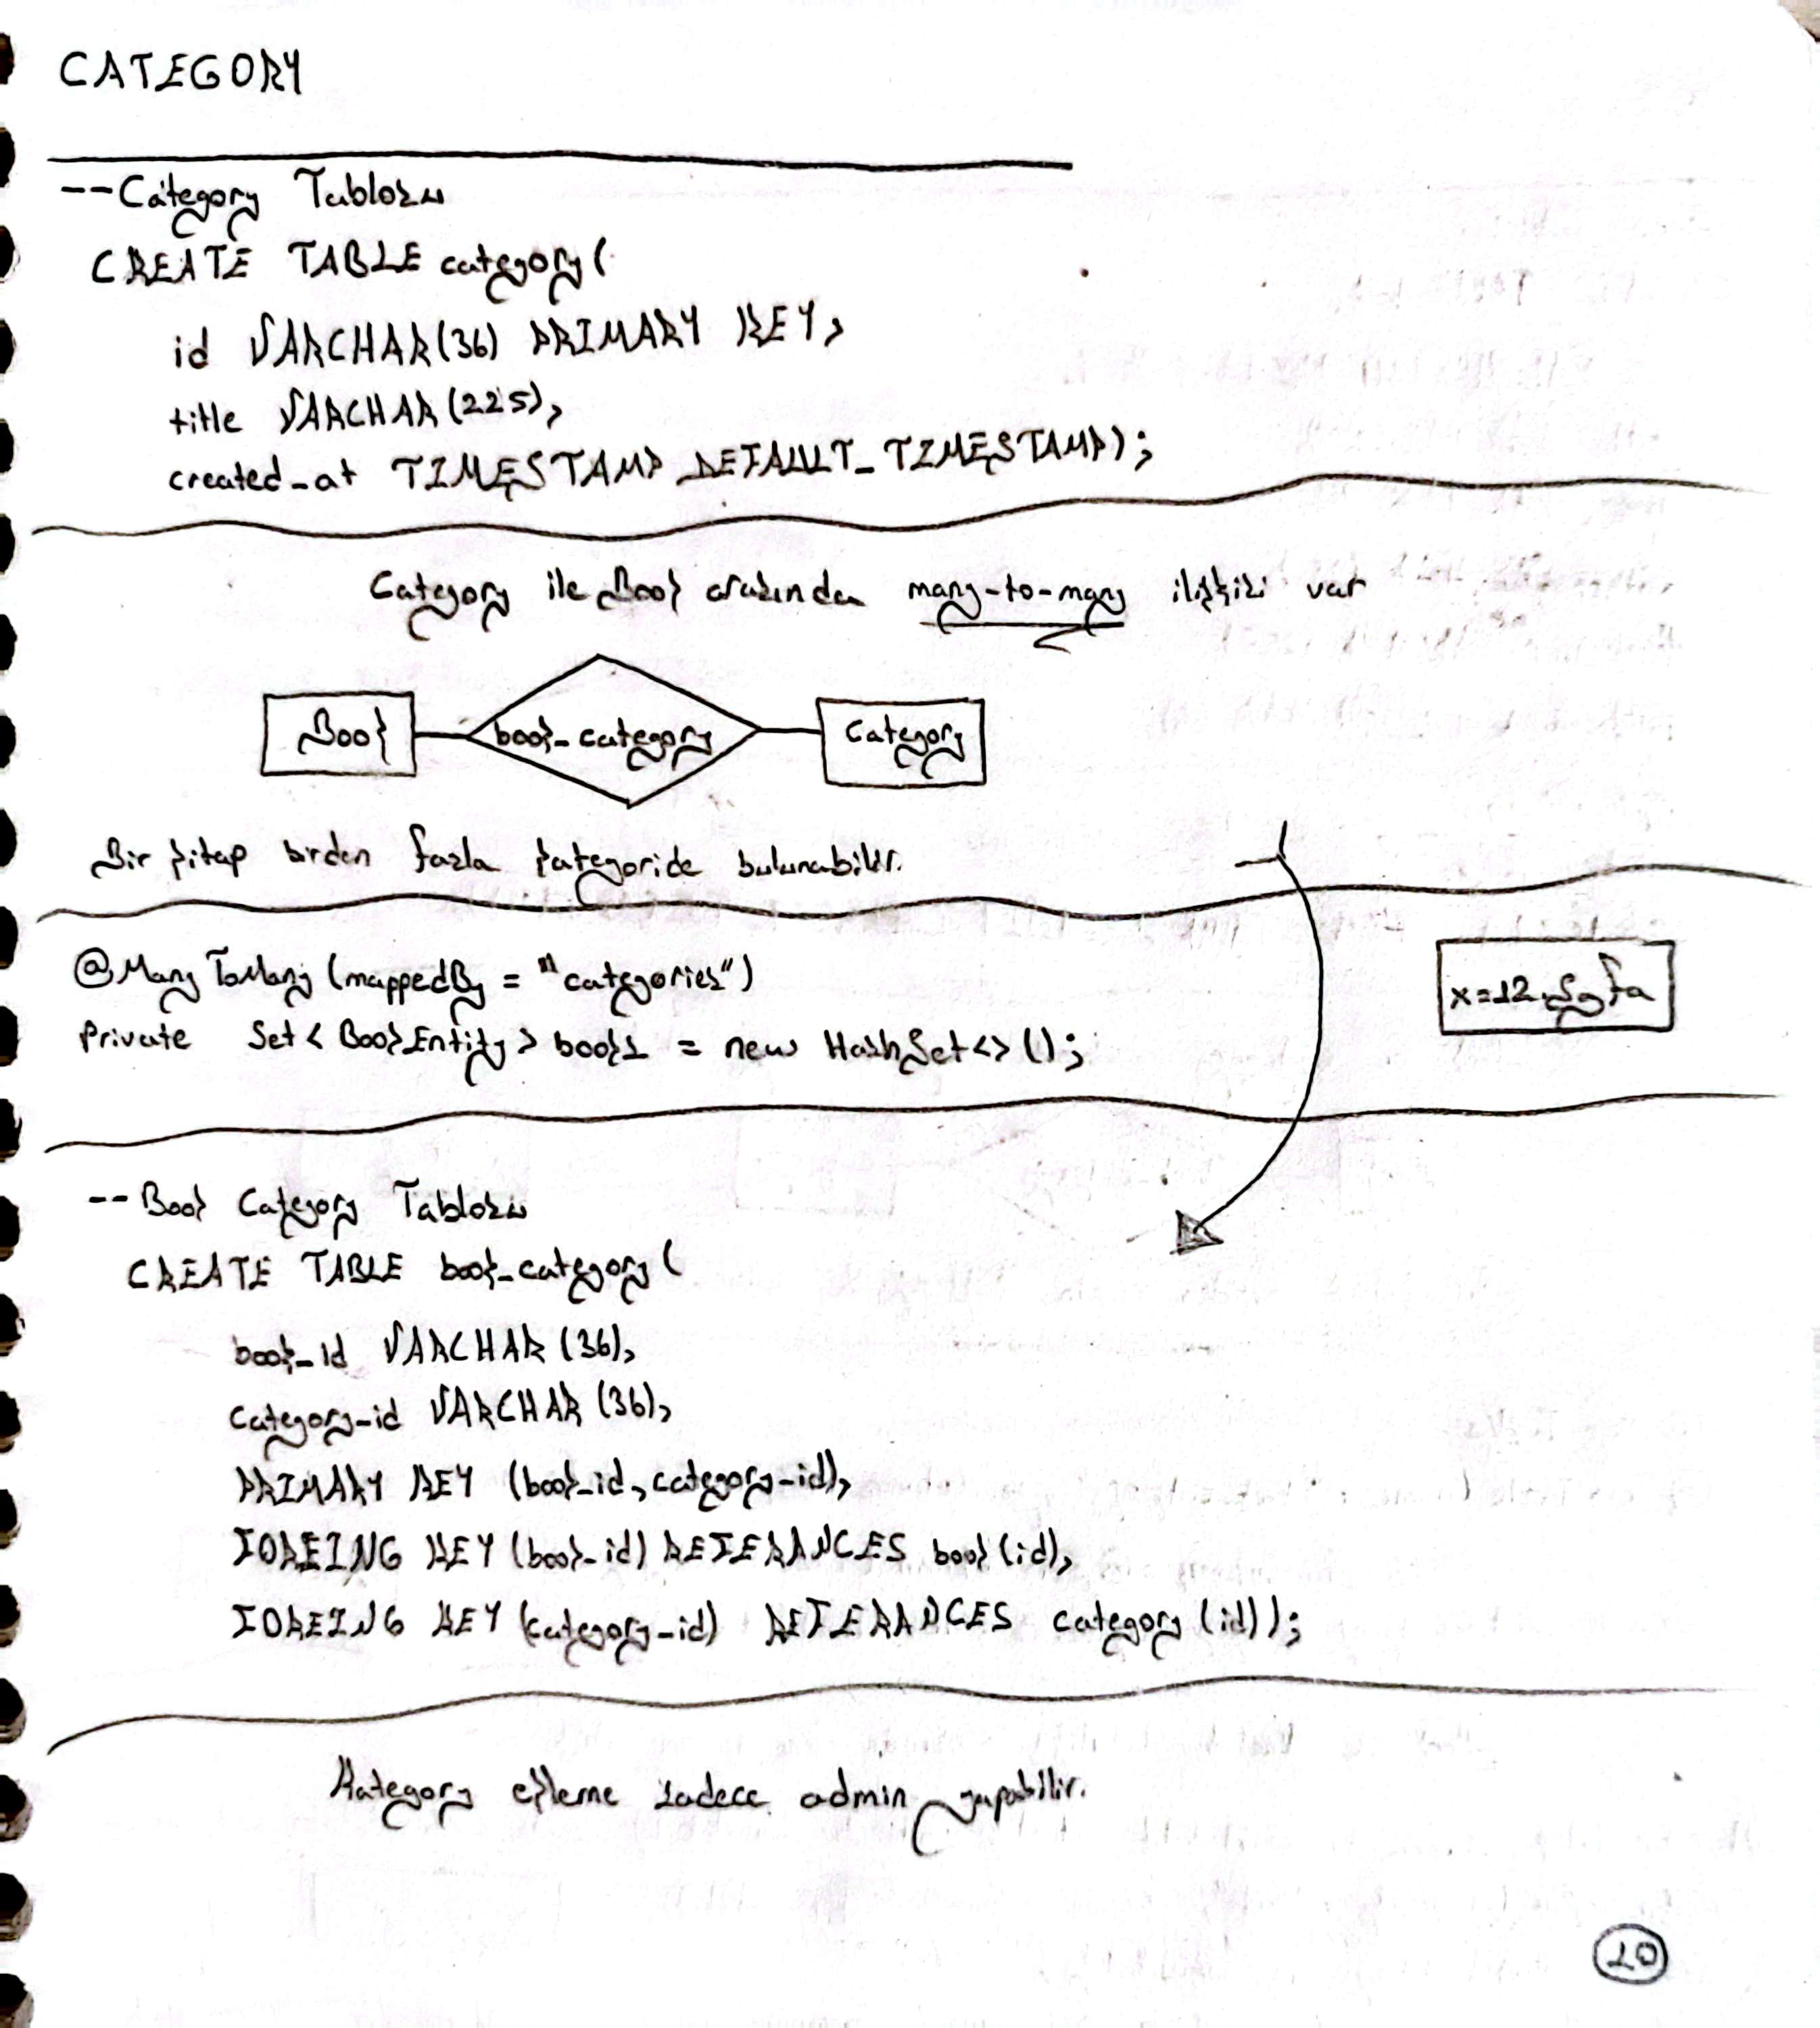 CATEGORY
--Category Tablosu
CREATE TABLE category(
id VARCHAR(36) PRIMARY KEY,
title VARCHAR(225),
created_at TIMESTAMP DEFAULT_TIMESTAMP);
Category ile Book arasında many-to-many ilişkisi var
Book book_category Category
Bir kitap birden fazla kategoride bulunabilir.
@ManyToMany(mappedBy = "categories")
Private Set<BookEntity> books = new HashSet<>();
x=12.Sayfa
--Book Category Tablosu
CREATE TABLE book_category(
book_id VARCHAR(36),
category_id VARCHAR(36),
PRIMARY KEY (book_id, category_id),
FOREING KEY (book_id) REFERANCES book(id),
FOREING KEY (category_id) REFERANCES category(id));
Kategory ekleme sadece admin yapabilir.
10